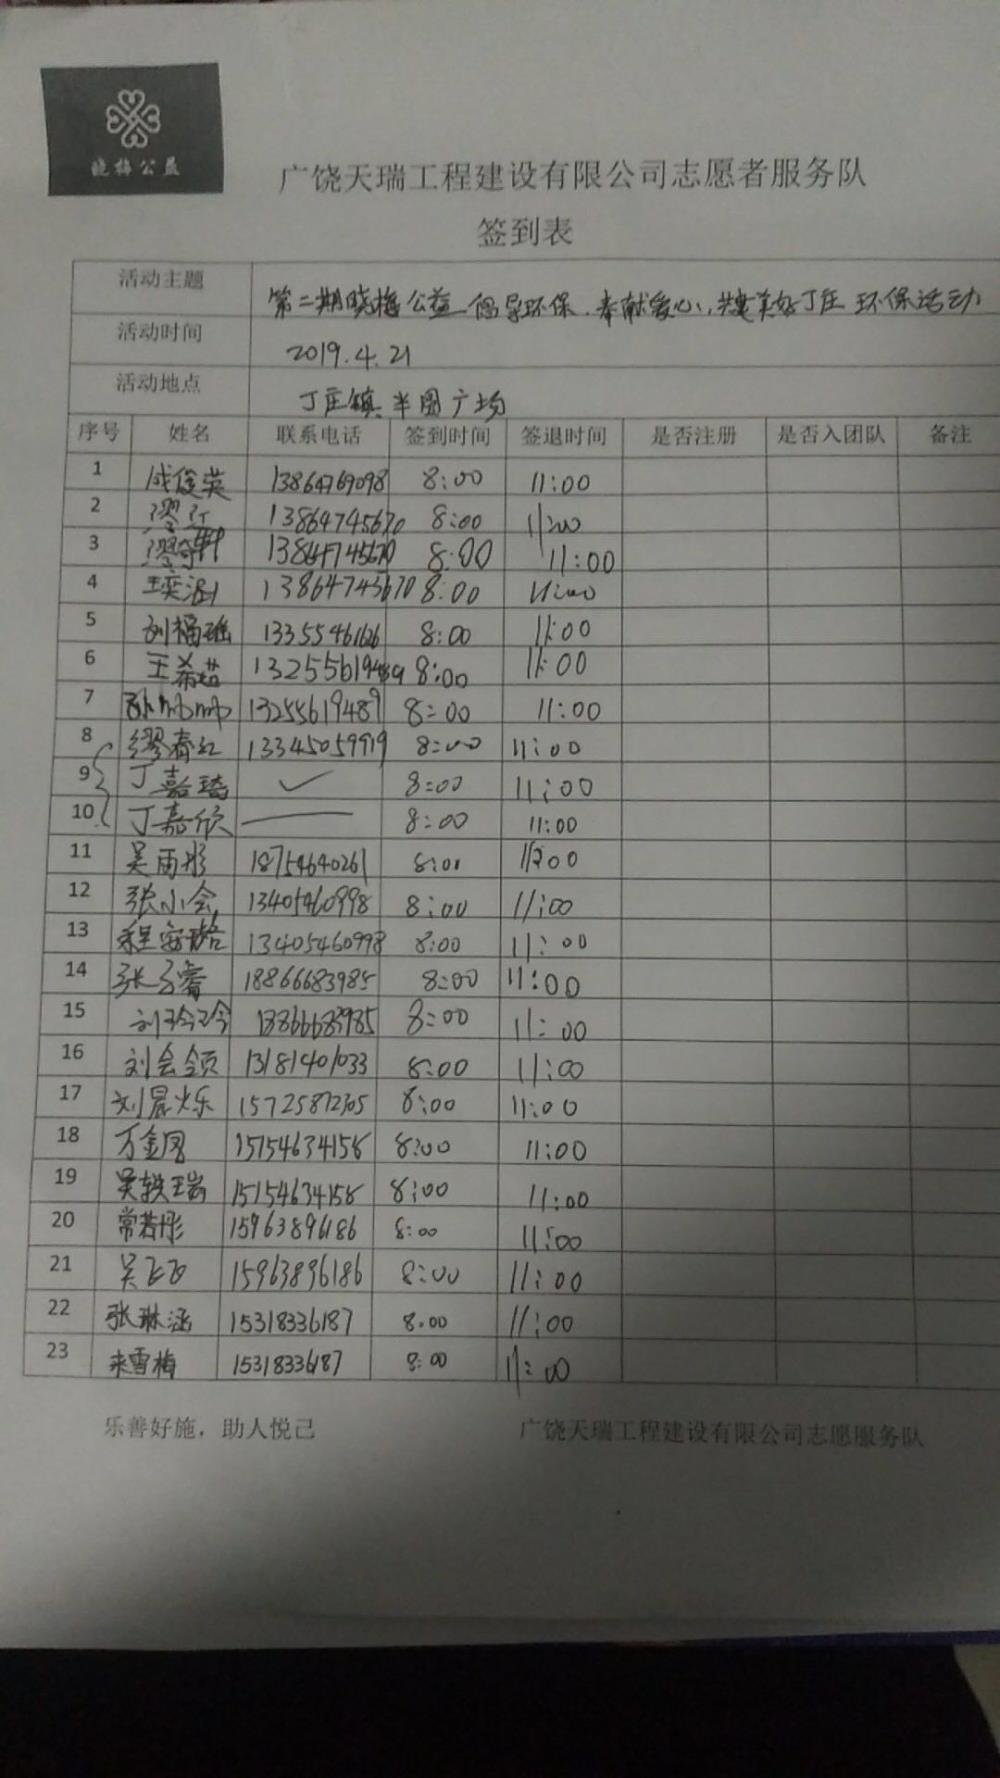 晓梅公益
广饶天瑞工程建设有限公司志愿者服务队
签到表
活动主题 第二期晓梅公益 倡导环保.奉献爱心,共建美好丁庄 环保活动
活动时间 2019.4.21
活动地点 丁庄镇 半圆广场
序号 姓名 联系电话 签到时间 签退时间 是否注册 是否入团队 备注
1 成俊英 13864769098 8:00 11:00
2 13864745670 8:00 11:00
3 13864745670 8:00 11:00
4 13864745670 8:00 11:00
5 刘福瑶 13355461626 8:00 11:00
6 王希茹 13255619489 8:00 11:00
7 13255619489 8:00 11:00
8 缪春红 13345059919 8:00 11:00
9 丁嘉琦 ✓ 8:00 11:00
10 丁嘉欣 — 8:00 11:00
11 吴雨彤 18754640261 8:00 11:00
12 张小会 13405460998 8:00 11:00
13 程安璐 13405460998 8:00 11:00
14 张子睿 18866683985 8:00 11:00
15 刘玲玲 18866683985 8:00 11:00
16 刘会领 13181401033 8:00 11:00
17 刘晨烁 15725872305 8:00 11:00
18 万金凤 15154634158 8:00 11:00
19 吴轶瑞 15154634158 8:00 11:00
20 常若彤 15963896186 8:00 11:00
21 吴飞飞 15963896186 8:00 11:00
22 张琳涵 15318336187 8:00 11:00
23 来雪梅 15318336187 8:00 11:00
乐善好施，助人悦己 广饶天瑞工程建设有限公司志愿服务队